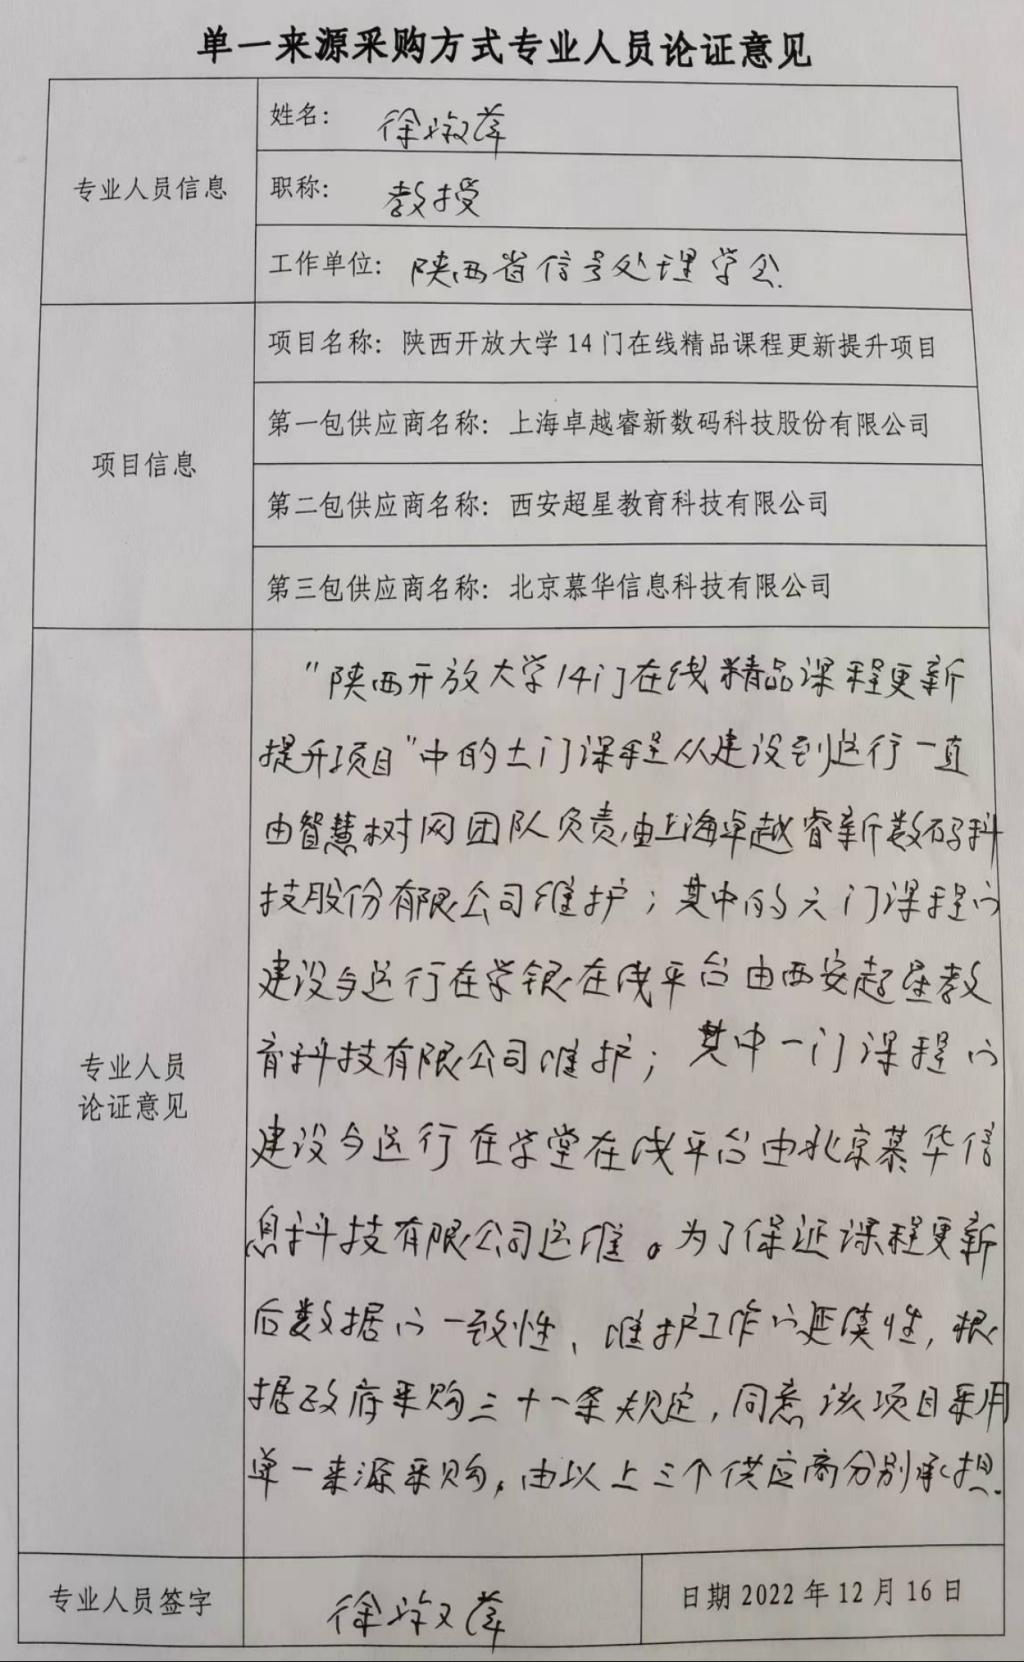 单一来源采购方式专业人员论证意见
专业人员信息
姓名：徐
职称：教授
工作单位：陕西省信号处理学会
项目信息
项目名称：陕西开放大学14门在线精品课程更新提升项目
第一包供应商名称：上海卓越睿新数码科技股份有限公司
第二包供应商名称：西安超星教育科技有限公司
第三包供应商名称：北京慕华信息科技有限公司
专业人员
论证意见
“陕西开放大学14门在线精品课程更新
提升项目”中的七门课程从建设到运行一直
由智慧树网团队负责,由上海卓越睿新数码科
技股份有限公司维护；其中的六门课程的
建设与运行在学银在线平台由西安超星教
育科技有限公司维护；其中一门课程的
建设与运行在学堂在线平台由北京慕华信
息科技有限公司运维。为了保证课程更新
后数据的一致性、维护工作的延续性,根
据政府采购三十一条规定,同意该项目采用
单一来源采购,由以上三个供应商分别承担.
专业人员签字
徐
日期2022年12月16日